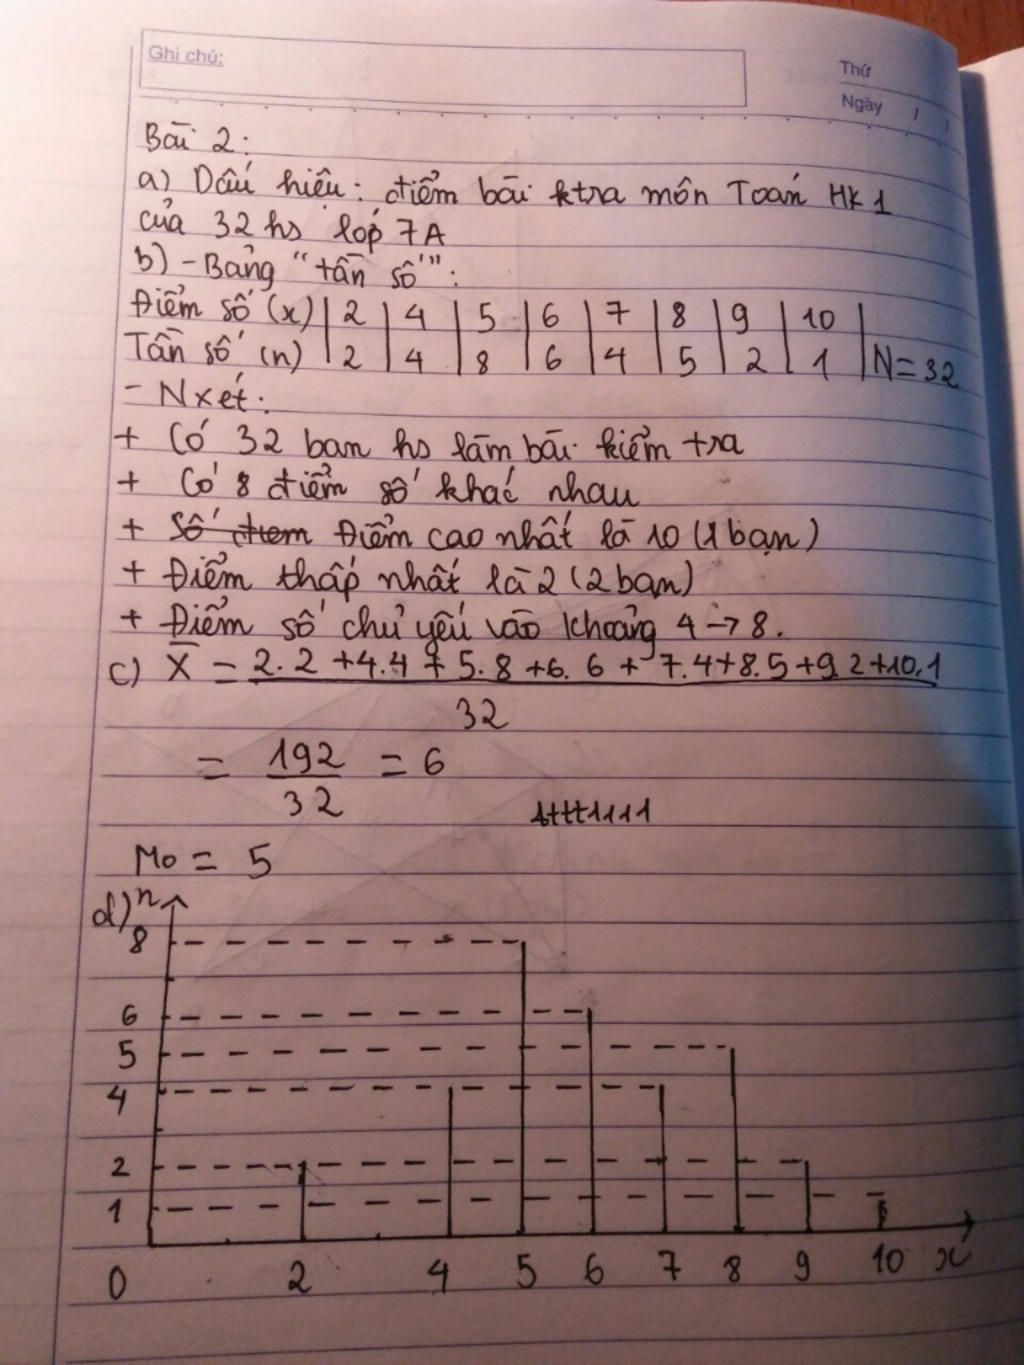 Ghi chú:
Thứ
Ngày / /
Bài 2:
a) Dấu hiệu: điểm bài ktra môn Toán HK1
của 32 hs lớp 7A
b) - Bảng "tần số":
Điểm số (x) | 2 | 4 | 5 | 6 | 7 | 8 | 9 | 10 |
Tần số (n) | 2 | 4 | 8 | 6 | 4 | 5 | 2 | 1 | N = 32
- Nxét:
+ Có 32 bạn hs làm bài kiểm tra
+ Có 8 điểm số khác nhau
+ Số điểm Điểm cao nhất là 10 (1 bạn)
+ Điểm thấp nhất là 2 (2 bạn)
+ Điểm số chủ yếu vào khoảng 4 → 8.
c) X̄ = 2.2 + 4.4 + 5.8 + 6.6 + 7.4 + 8.5 + 9.2 + 10.1
32
= 192 = 6
32
Mo = 5
d) n
8
6
5
4
2
1
0 2 4 5 6 7 8 9 10 x